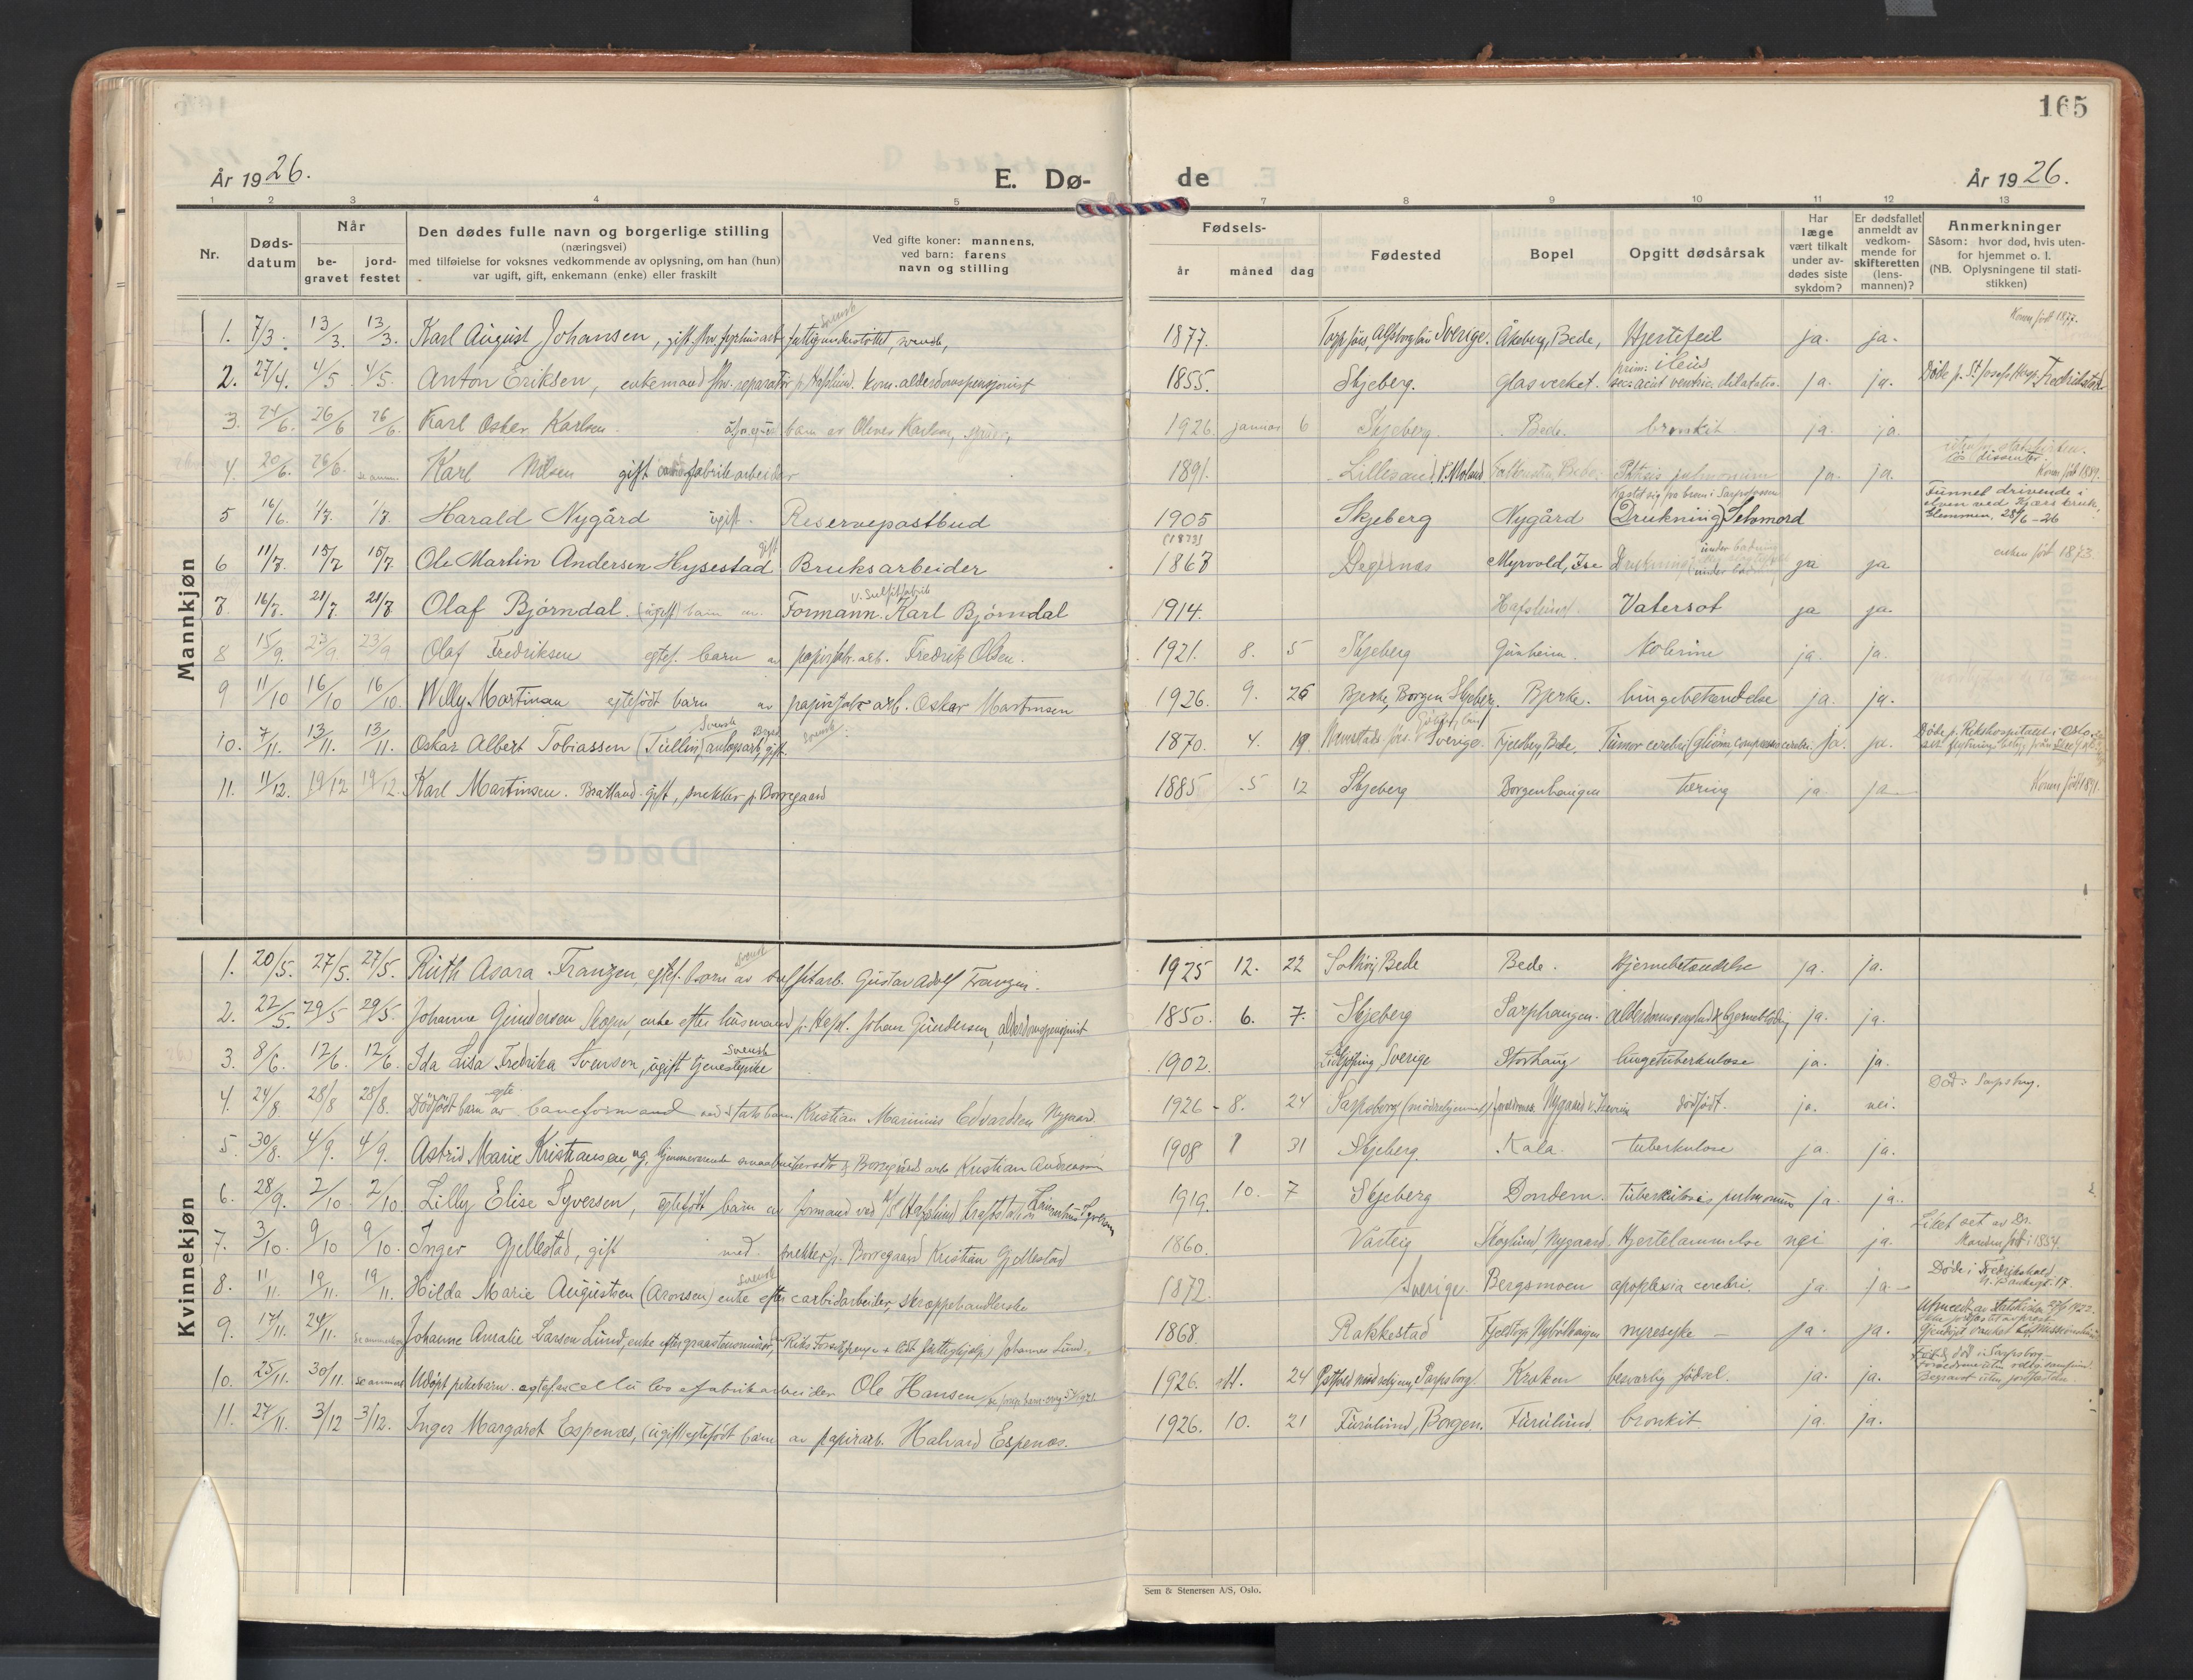 165
År 1926.
E. Dø-
de
År 1926.
1 2 3 4 5 7 8 9 10 11 12 13
Nr.
Døds-
datum
Når
be-
gravet
jord-
festet
Den dødes fulle navn og borgerlige stilling
(næringsvei)
med tilføielse for voksnes vedkommende av oplysning, om han (hun)
var ugift, gift, enkemann (enke) eller fraskilt
Ved gifte koner: mannens,
ved barn: farens
navn og stilling
Fødsels-
år måned dag
Fødested
Bopel
Opgitt dødsårsak
Har
læge
vært tilkalt
under av-
dødes siste
sykdom?
Er dødsfallet
anmeldt av
vedkom-
mende for
skifteretten
(lens-
mannen)?
Anmerkninger
Såsom: hvor død, hvis uten-
for hjemmet o. l.
(NB. Oplysningene til stati-
stikken)
Mannkjøn
Svensk Konen født 1877.
1. 7/3. 13/3. 13/3. Karl August Johansen, gift fattigunderstøttet, 1877. Sverige. Åkeberg, Bede, Hjertefeil ja. ja.
prim: ileus
2. 27/4. 4/5 4/5. Anton Eriksen, enkemand fhv. reparatør p. Hafslund. kom. alderdomspensjonist 1855. Skjeberg. Glasverket. sec: acut ventric. dilatatio. ja. ja. Døde p. St. Josefs Hosp. Fredrikstad
3. 24/6. 26/6 26/6. Karl Oskar Karlsen. barn av Karlsen, 1926 januar 6 Skjeberg. Bede. bronkit ja. ja.
dissenter.
4. 20/6. 26/6. se anm. Karl Nilsen gift fabrikarbeider 1891. Lillesand, V. Moland Phtisis pulmonum ja. ja. Konen født 1889.
Kastet sig fra broen i Sarpsfossen
5 16/6. 1/7. 1/7. Harald Nygård ugift. Reservepostbud 1905 Skjeberg Nygård (Drukning) Selvmord Funnet drivende i
elven ved
Glemmen, 28/6-26
gift (1873) under badning
6 11/7. 15/7 15/7. Ole Martin Andersen Hysestad Bruksarbeider 1868 Degernes Myrvold, Ise Drukning ja ja enken født 1873.
v. Sulfitfabrik
7. 16/7. 21/7 21/7 Olaf Bjørndal. (ugift) barn av. Formann. Karl Bjørndal 1914. Hafslund Vatersot ja ja.
8 15/9. 23/9. 23/9 Olaf Fredriksen egtef. barn av papirfabr. arb. Fredrik Olsen. 1921. 8. 5 Skjeberg Kolerine ja. ja.
9 11/10 16/10 16/10. Willy Martinsen egtefødt barn av papirfabr arb. Oskar Martinsen 1926. 9. 26 Bjerke, Borgen Skjeberg. Bjerke. lungebetændelse ja. ja.
Svensk Svensk
10. 7/11. 13/11. 13/11. Oskar Albert Tobiassen (Tullin) anlægsarb., gift. 1870. 4. 19 Sverige. Fjeldberg, Bede. Tumor cerebri (gliom, compressio cerebri. ja. ja. Døde p. Rikshospitalet i Oslo
11. 11/12. 19/12 19/12. Karl Martinsen. Bratland gift, snekker p. Borregaard 1885 5 12 Skjeberg Borgenhaugen tæring ja ja Konen født 1891.
Døde
Kvinnekjøn
Svensk
1. 20/5. 27/5. 27/5. Ruth Asara Franzen, egtef. barn av sulfitarb. Gustav Adolf Franzen. 1925 12. 22 Solhøi, Bede Bede. Hjernebetændelse ja. ja.
2. 22/5. 29/5 29/5. Johanne Gundersen Skogen, enke efter husmand p. Johan Gundersen, alderdomspensjonist 1850. 6. 7. Skjeberg Sarphaugen. alderdomssvaghet & hjerneblødn. ja. ja.
Svensk
3. 8/6. 12/6. 12/6. Ida Lisa Fredrika Svenson, ugift tjenestepike 1902. Lidköping, Sverige Storhaug lungetuberkulose ja. ja.
egte Død i Sarpsborg.
4. 24/8. 28/8 28/8. Dødfødt barn av baneformand ved statsban. Kristian Marinius Edvardsen Nygaard. 1926 - 8. 24 Sarpsborg (mødrehjemmet) foreldrenes. Nygaard dødfødt. ja. nei.
5. 30/8. 4/9. 4/9. Astrid Marie Kristiansen, ug. hjemmeværende smaabrukersdtr & Borregaard arb. Kristian Andreassen 1908 1 31 Skjeberg. Kala. tuberkulose ja. ja.
6. 28/9. 2/10 2/10 Lilly Elise Syversen, egtefødt barn av formand ved A/S Hafslund Kraftstation Syversen 1919. 10. 7 Skjeberg Dondern. tuberkulosis pulmonum ja. ja.
Liket set av Dr.
7. 3/10. 9/10 9/10. Inger Gjellestad, gift med. snekker p. Borregaard Kristian Gjellestad 1860. Varteig Skoglund, Nygaard. Hjertelammelse nei ja. Manden født i 1854.
Svensk Døde i Fredrikshald
8. 11/11. 19/11. 19/11. Hilda Marie Augustsen (Aronsen) enke efter carbidarbeider, skrappehandlerske 1872. Sverige. Bergsmoen apoplexia cerebri. ja. ja -
9. 17/11. 24/11. se anmerkn. Johanne Amalie Larsen Lund, enke efter graastensminør, Johannes Lund. 1868. Rakkestad Fjeldtop, nyresyke - ja. ja. Utmeldt av Statskirken 1922.
Født & død i Sarpsborg -
10. 25/11. 30/11. se anmerk. Udøpt pikebarn. egtef. cellulosefabrikarbeider Ole Hansen 1926. 11. 24 Sarpsborg Kroken besværlig fødsel. ja. ja. Foreldrene uten religionssamfund.
Begravet uten jordfæstelse.
11. 27/11. 3/12 3/12. Inger Margaret Espenæs, (ugift) egtefødt barn av papirarb. Halvard Espenæs. 1926. 10. 21 Furulund, Borgen. Furulund. bronkit ja. ja.
Sem & Stenersen A/S, Oslo.